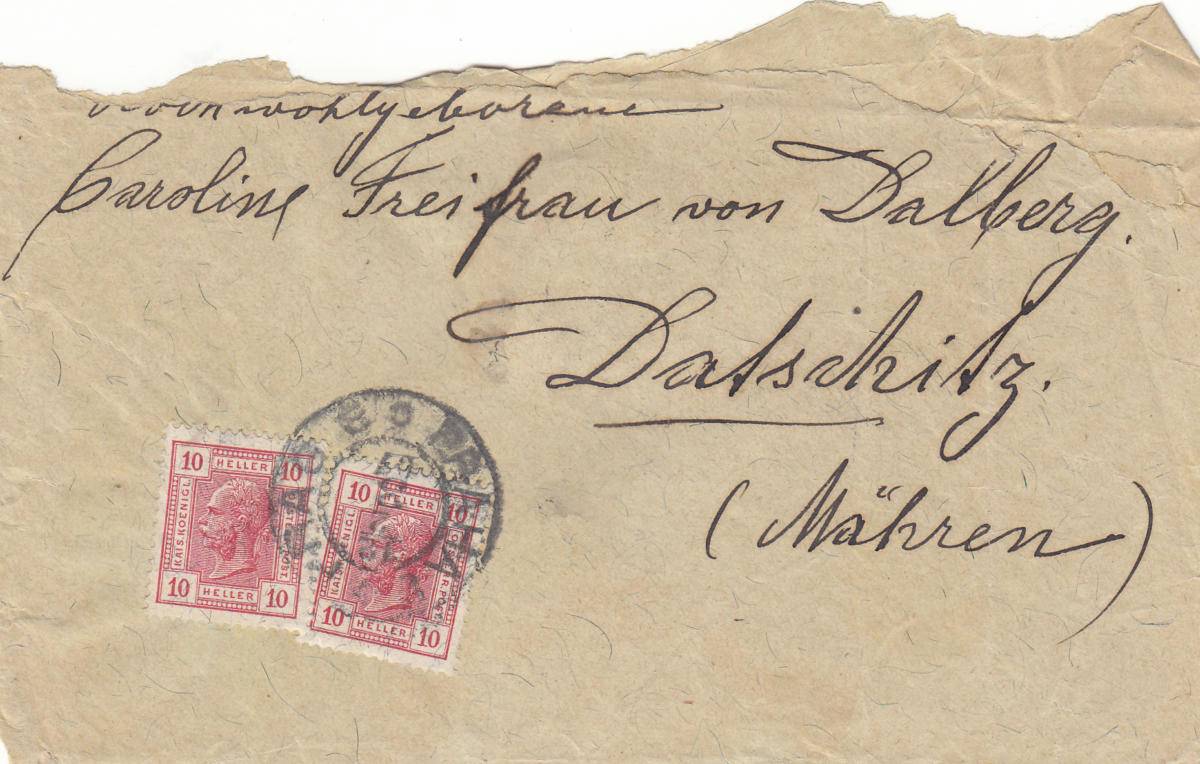 Hochwohlgeborene
Caroline Freifrau von Dalberg.
Datschitz.
(Mähren)
10 HELLER 10
KAIS. KOENIGL.
10 HELLER 10
10 10
KAIS. KOENIGL.
R. POST
10 HELLER 10